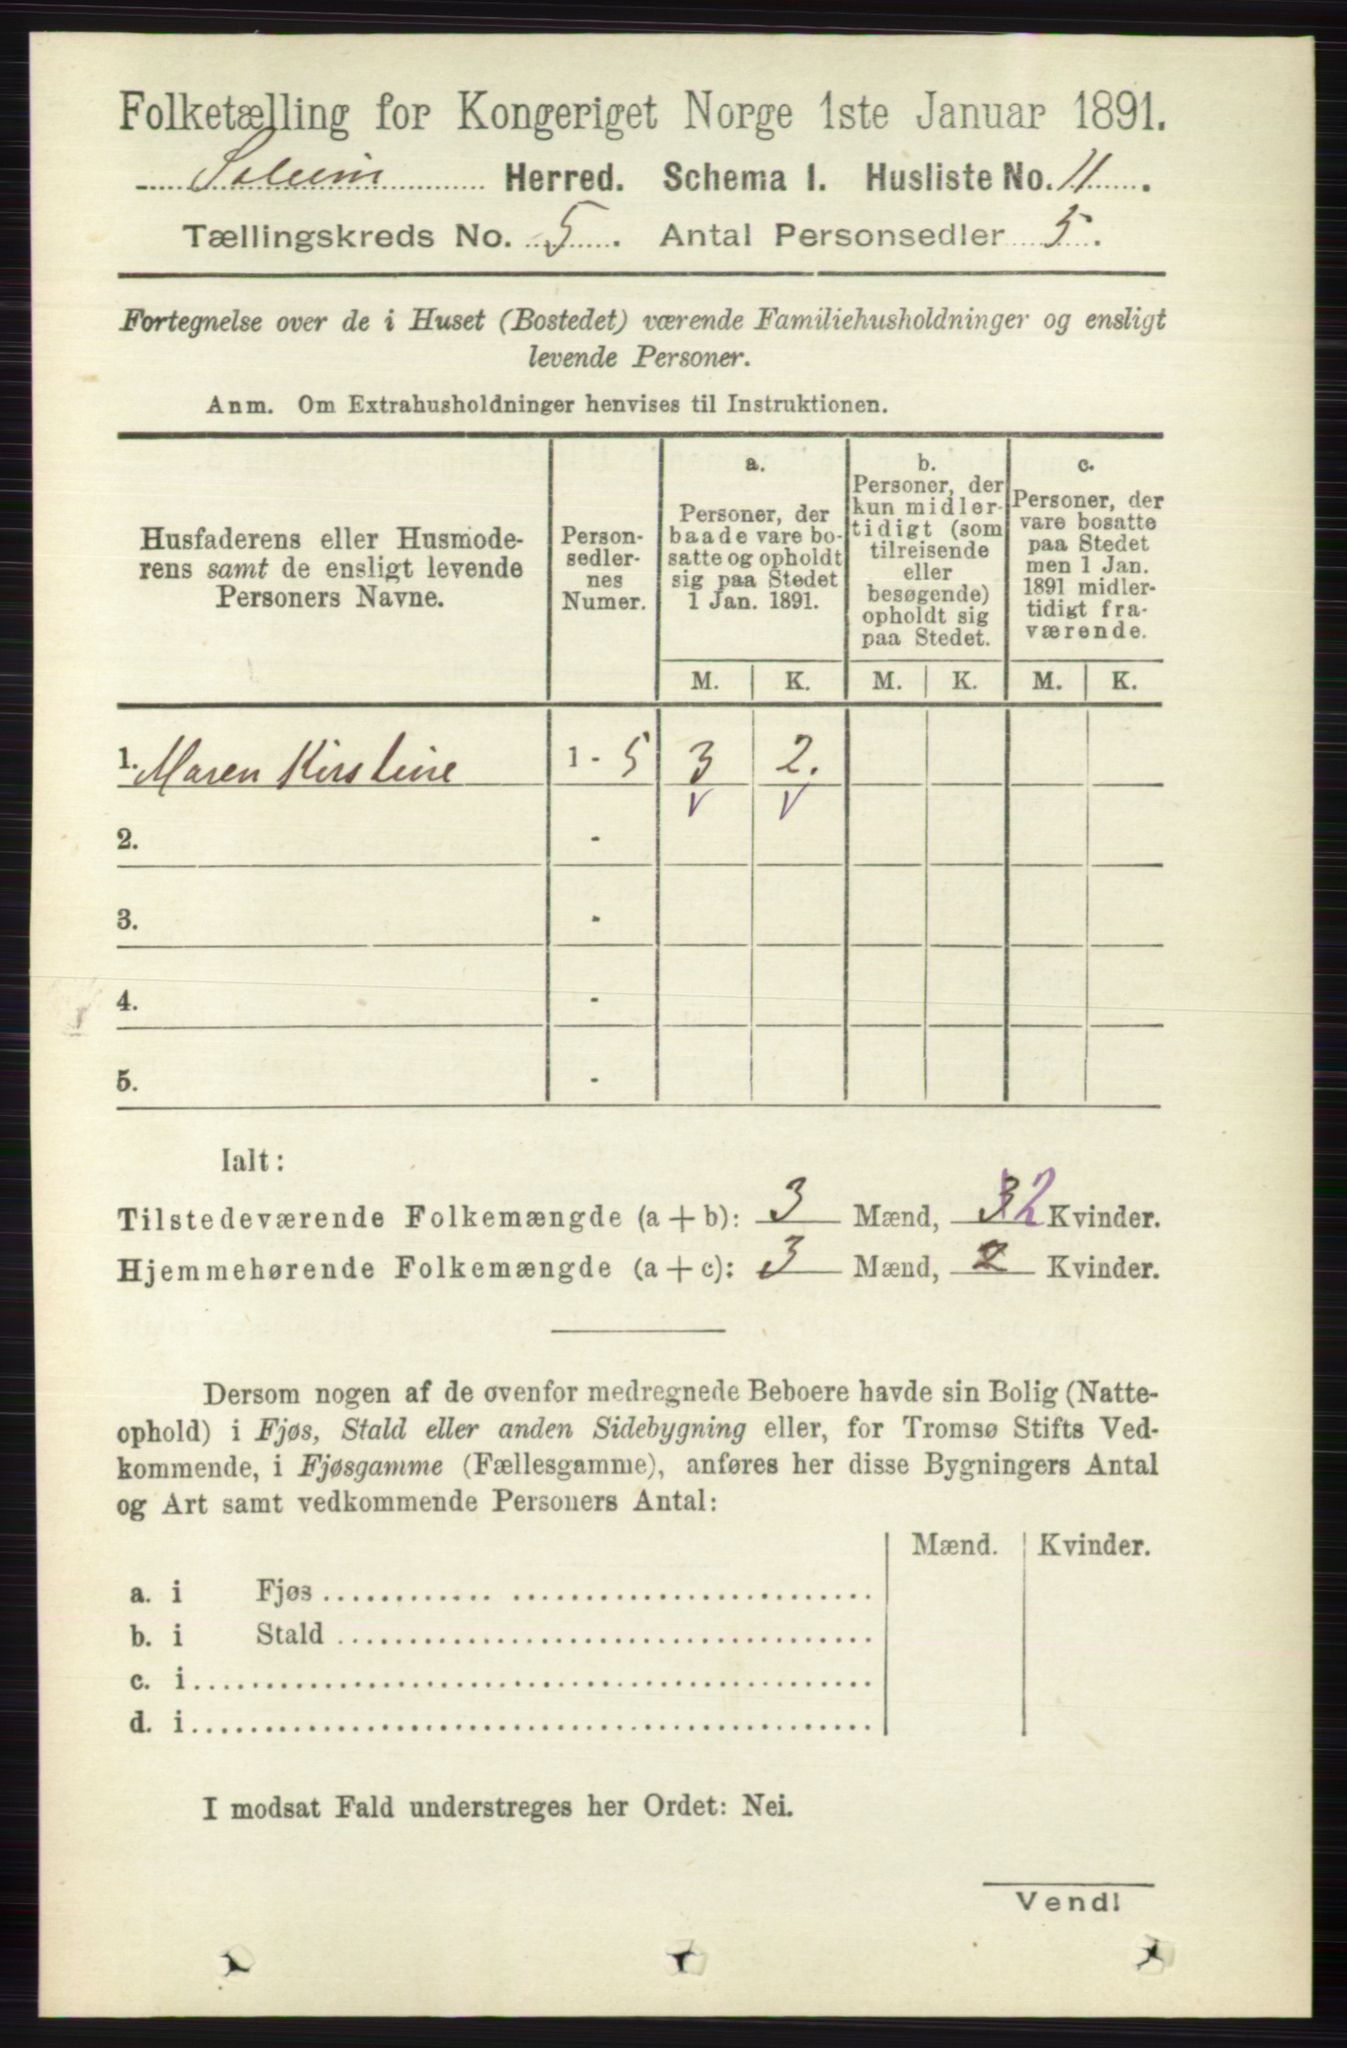 Folketælling for Kongeriget Norge 1ste Januar 1891.
Solum Herred. Schema 1. Husliste No. 11.
Tællingskreds No. 5. Antal Personsedler 5.
Fortegnelse over de i Huset (Bostedet) værende Familiehusholdninger og ensligt
levende Personer.
Anm. Om Extrahusholdninger henvises til Instruktionen.
Husfaderens eller Husmode-
rens samt de ensligt levende
Personers Navne.
Person-
sedler-
nes
Numer.
a.
Personer, der
baade vare bo-
satte og opholdt
sig paa Stedet
1 Jan. 1891.
b.
Personer, der
kun midler-
tidigt (som
tilreisende
eller
besøgende)
opholdt sig
paa Stedet.
c.
Personer, der
vare bosatte
paa Stedet
men 1 Jan.
1891 midler-
tidigt fra-
værende.
M. K. M. K. M. K.
1. Maren Kirstine 1 - 5 3 2.
V V
2. -
3. -
4. -
5. -
Ialt:
Tilstedeværende Folkemængde (a + b): 3 Mænd, 32 Kvinder.
Hjemmehørende Folkemængde (a + c): 3 Mænd, 2 Kvinder.
Dersom nogen af de ovenfor medregnede Beboere havde sin Bolig (Natte-
ophold) i Fjøs, Stald eller anden Sidebygning eller, for Tromsø Stifts Ved-
kommende, i Fjøsgamme (Fællesgamme), anføres her disse Bygningers Antal
og Art samt vedkommende Personers Antal:
Mænd. Kvinder.
a. i Fjøs
b. i Stald
c. i
d. i
I modsat Fald understreges her Ordet: Nei.
Vend!